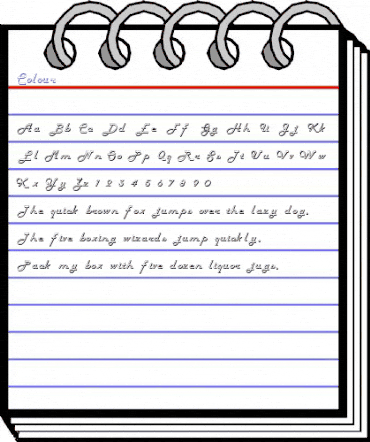 Colour
Aa Bb Cc Dd Ee Ff Gg Hh Ii Jj Kk
Ll Mm Nn Oo Pp Qq Rr Ss Tt Uu Vv Ww
Xx Yy Zz 1 2 3 4 5 6 7 8 9 0
The quick brown fox jumps over the lazy dog.
The five boxing wizards jump quickly.
Pack my box with five dozen liquor jugs.